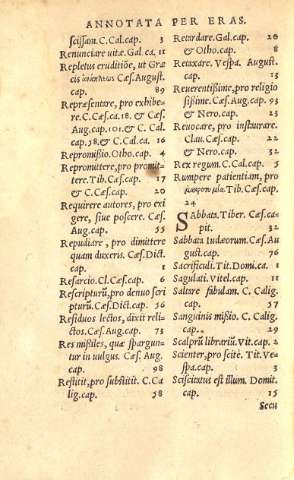 ANNOTATA PER ERAS.
scissam. C. Cal. cap. 3
Renunciare uitæ. Gal. ca. 11
Repletus eruditiõe, ut Græcis
Cæs. August.
cap. 89
Repræsentare, pro exhibere.
C. Cæs. ca. 18. & Cæs.
Aug. cap. 101. & C. Cal.
cap. 58. & C. Cal. ca. 16
Repromissio. Otho. cap. 4
Repromittere, pro promittere.
Tib. Cæs. cap. 17
& C. Cæs. cap. 20
Requirere autores, pro exigere,
siue poscere. Cæs.
Aug. cap. 55
Repudiare, pro dimittere
quam duxeris. Cæs. Dict.
cap. 1
Resarcio. Cl. Cæs. cap. 6
Rescripturũ, pro denuo scripturũ.
Cæs. Dict. cap. 56
Residuos lectos, dixit relictos.
Cæs. Aug. cap. 73
Res missiles, quæ sparguntur
in uulgus. Cæs. Aug.
cap. 98
Restitit, pro substitit. C. Calig.
cap. 58
Retardare. Gal. cap. 20
& Otho. cap. 8
Retaxare. Vespa. August.
cap. 13
Reuerentissime, pro religiosissime.
Cæs. Aug. cap. 93
& Nero. cap. 23
Reuocare, pro instaurare.
Clau. Cæs. cap. 22
& Nero. cap. 32
Rex regum. C. Cal. cap. 5
Rumpere patientiam, pro
Tib. Cæs. cap.
24
SAbbats. Tiber. Cæs. cap
it. 32
Sabbata Iudæorum. Cæs. August.
cap. 76
Sacrificuli. Tit. Domi. ca. 1
Sagulati. Vitel. cap. 11
Salire fubulam. C. Calig.
cap. 57
Sanguinis missio. C. Calig.
cap. 29
Scalprũ librariũ. Vit. cap. 2
Scienter, pro scitè. Tit. Vespa.
cap. 3
Sciscitatus est illum. Domit.
cap. 15
Secu